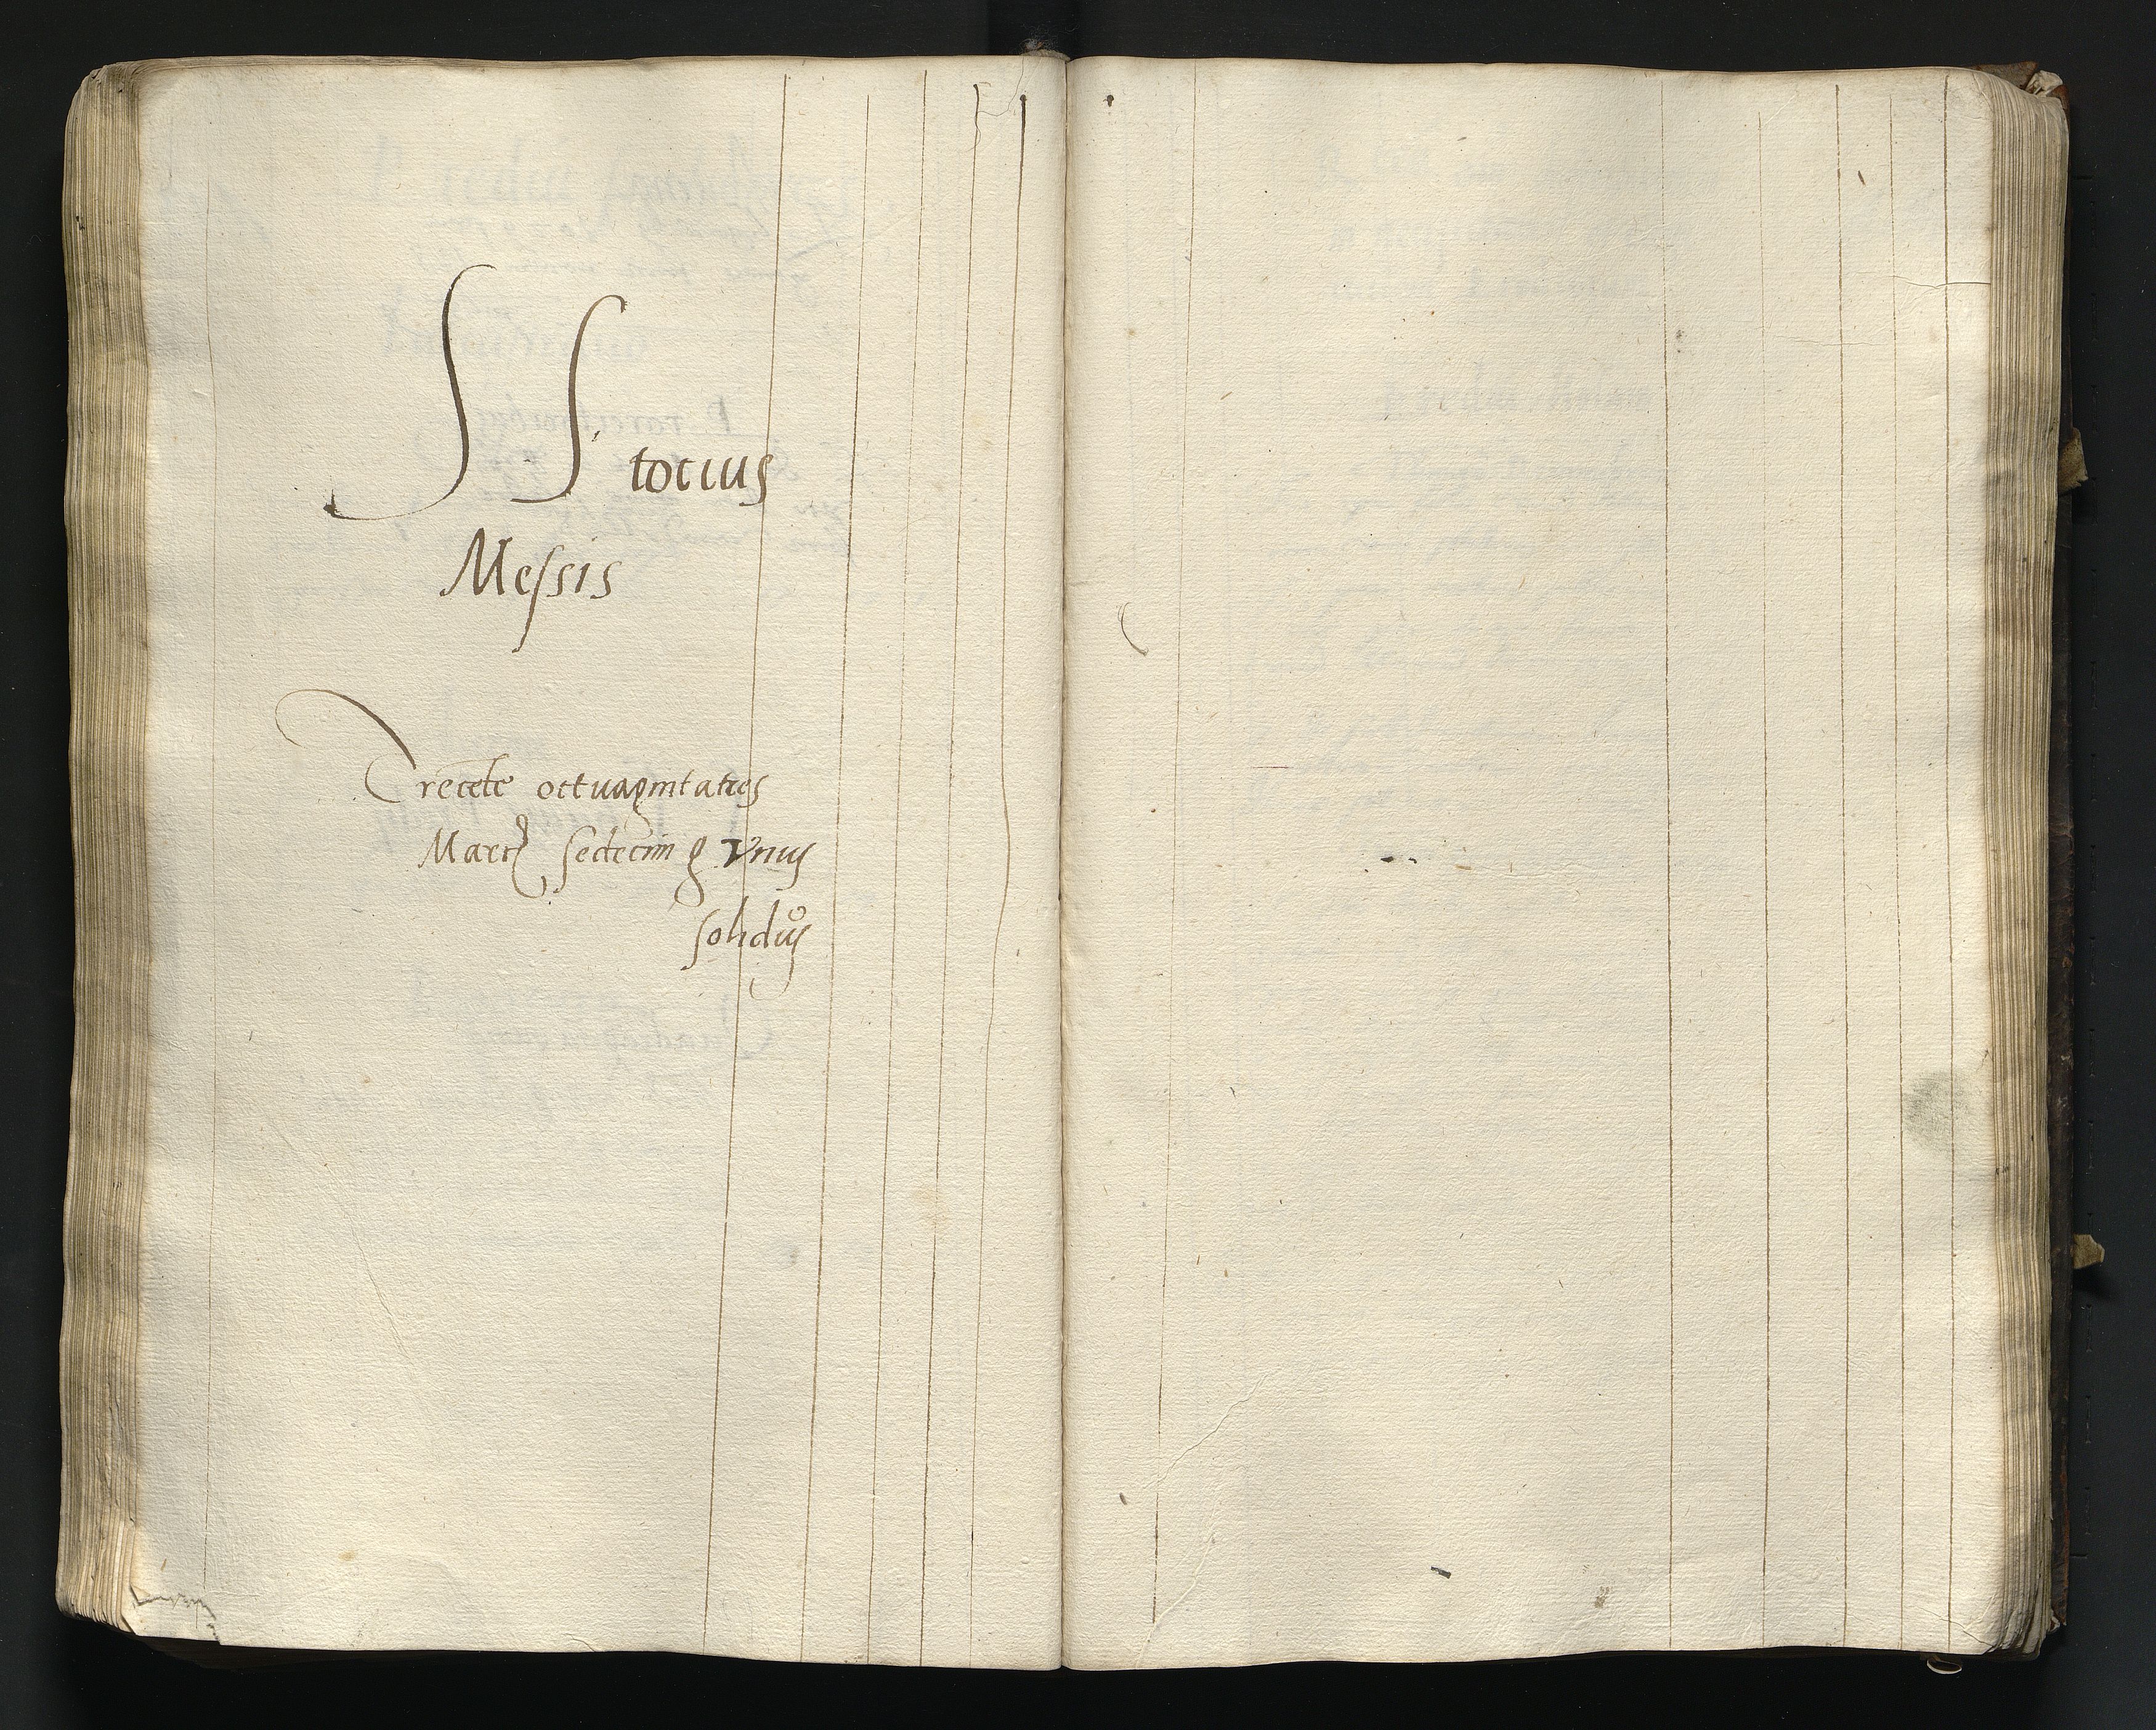 SS tocius
Messis
Trecēte octuagintatres
Marcę sedecim g Vnus
solidůs